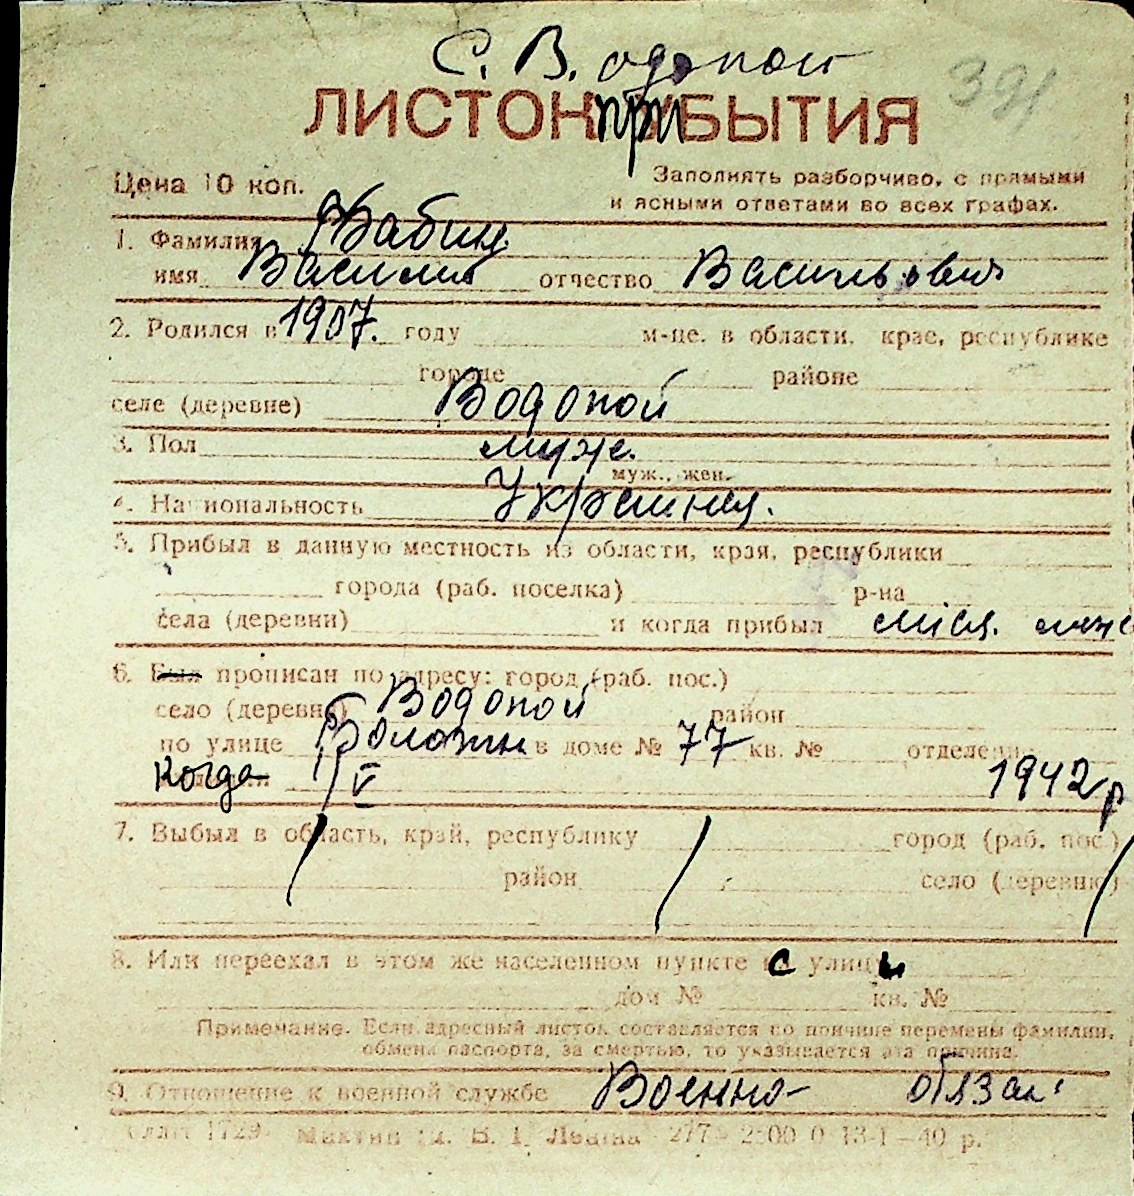 С. Водопой
391
ЛИСТОК прИБЫТИЯ
Цена 10 коп.
Заполнять разборчиво, с прямыми
и ясными ответами во всех графах.
1. Фамилия Бабич
имя Василий отчество Васильович
2. Родился в 1907. году м-це. в области, крае, республике
городе районе
селе (деревне) Водопой
3. Пол муж.
муж., жен.
4. Национальность Украинец.
5. Прибыл в данную местность из области, края, республики
города (раб. поселка) р-на
села (деревни) и когда прибыл
6. Был прописан по адресу: город (раб. пос.)
село (деревня) Водопой район
по улице в доме № 77 кв. № отделение
Когда V 1942 р
7. Выбыл в область, край, республику город (раб. пос.)
район село (деревню)
8. Или переехал в этом же населенном пункте с улицы
дом № кв. №
Примечание. Если адресный листок составляется по причине перемены фамилии,
обмена паспорта, за смертью, то указывается эта причина.
9. Отношение к военной службе Военно- обязан.
1729 В. І. Леніна 277 - 2500 0 13-І-40 р.